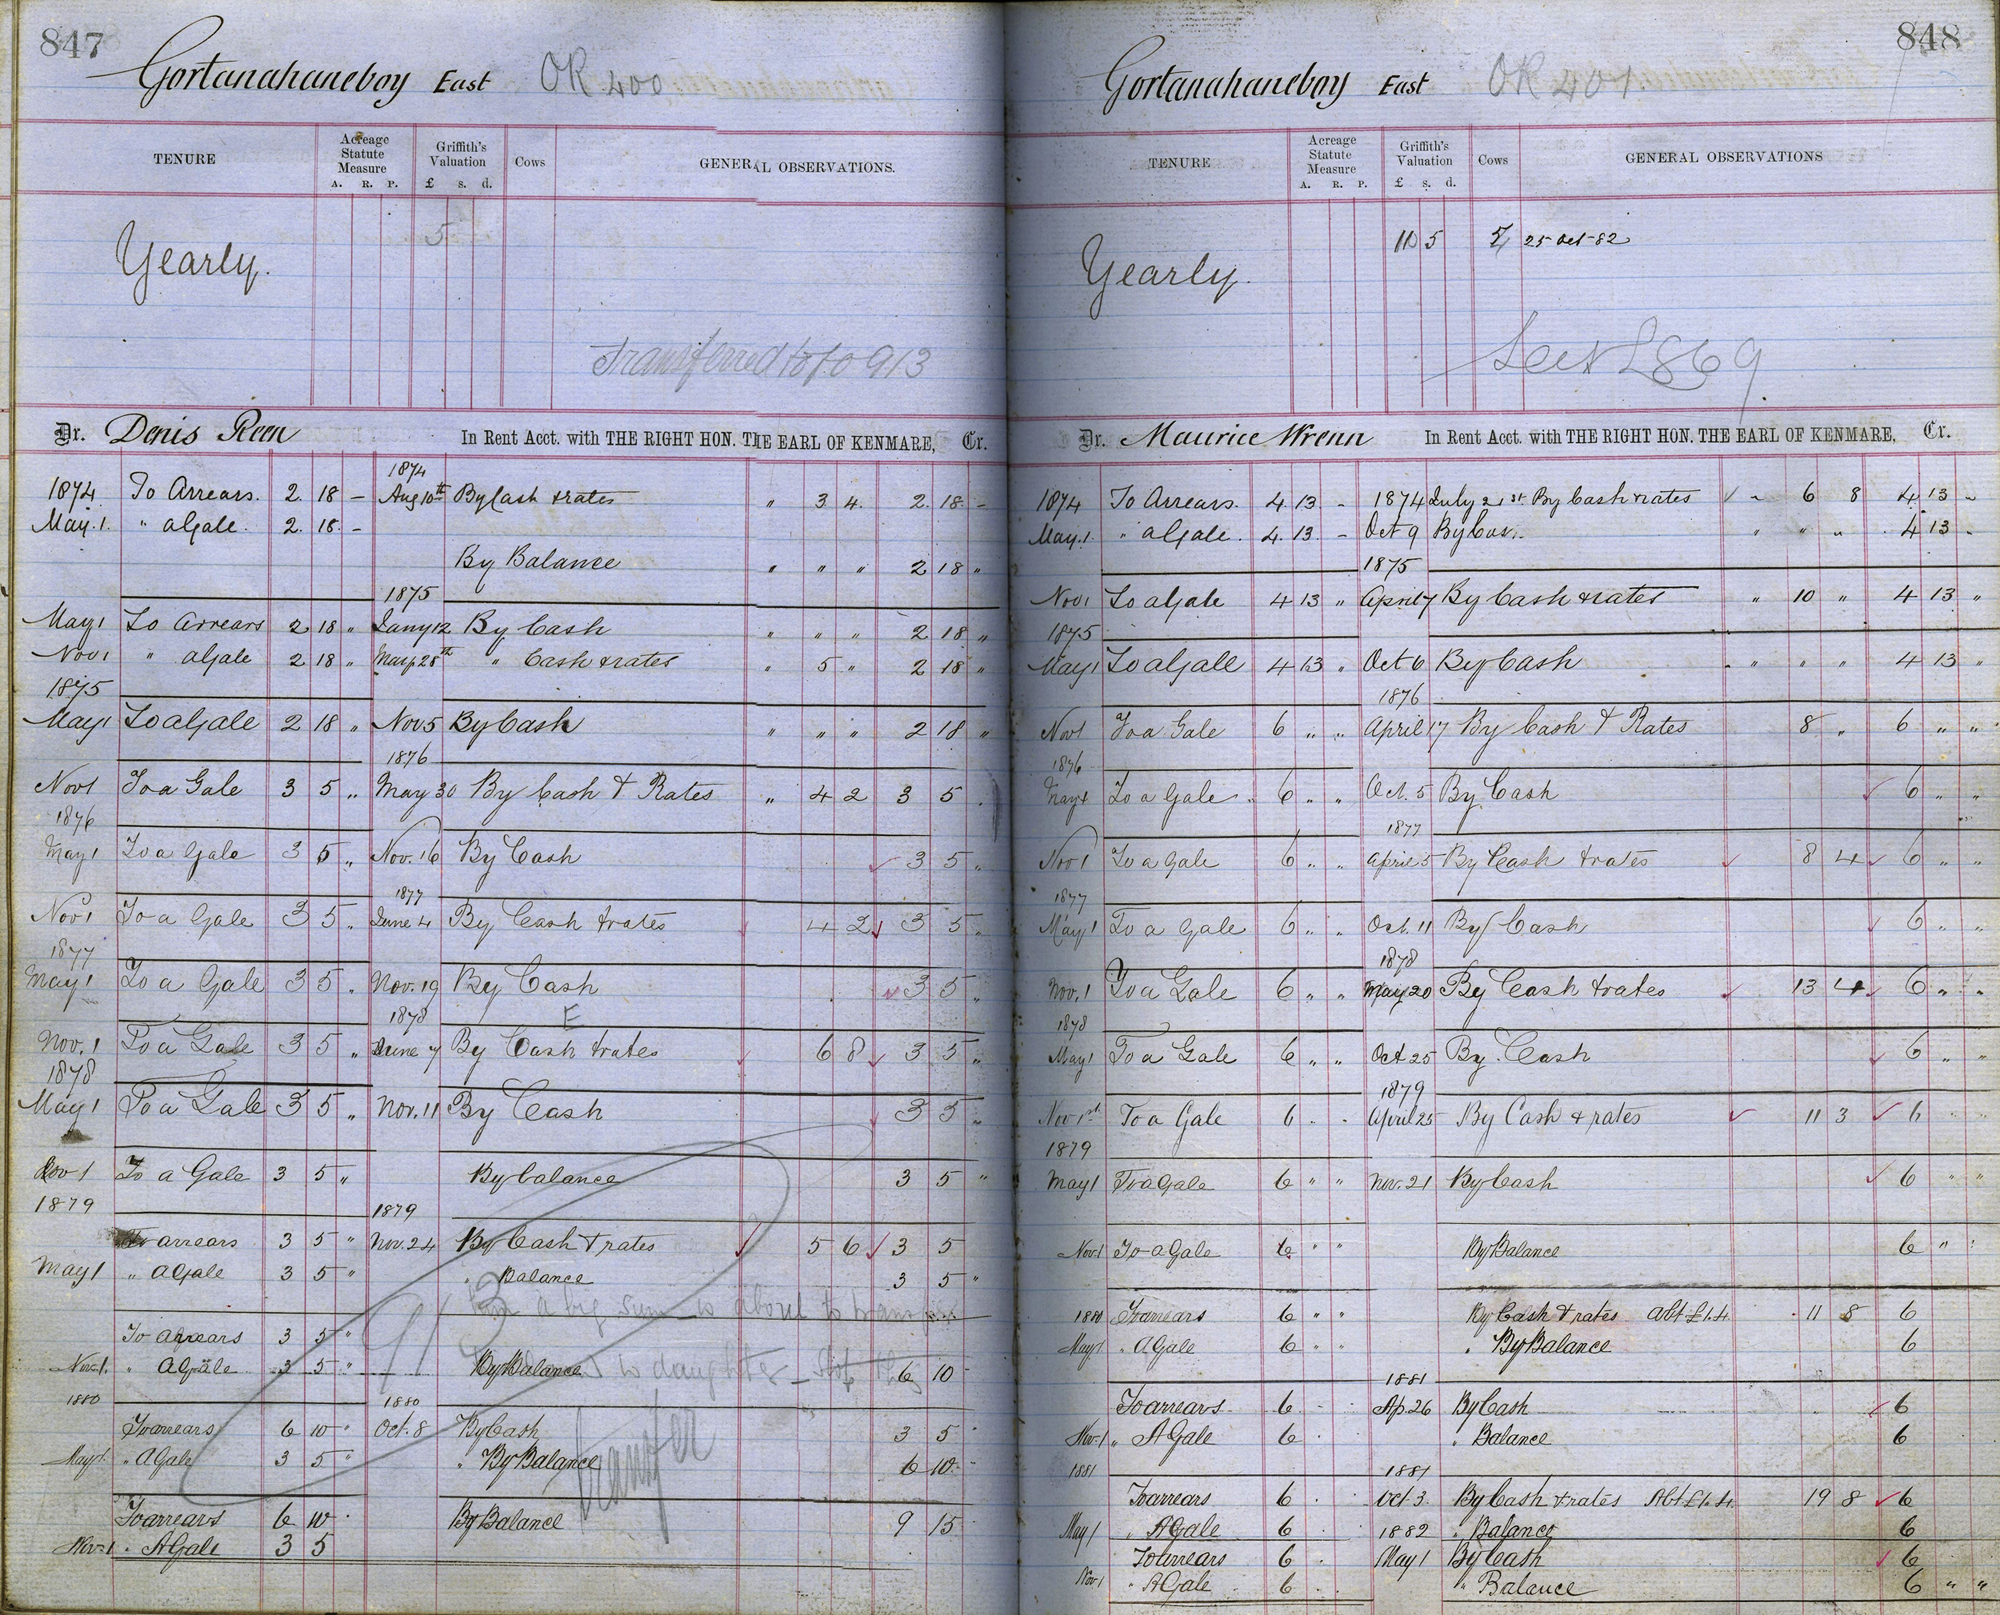 847
Gortanahaneboy East OK 400
TENURE
Acreage Statute Measure
A. R. P.
Griffith's Valuation
£ s. d.
Cows
GENERAL OBSERVATIONS.
Yearly. 5
Transferred to fo 913
Dr. Denis Reen In Rent Acct. with THE RIGHT HON. THE EARL OF KENMARE, Cr.
1874
1874 To Arrears. 2. 18 - Aug 10th By Cash & rates " 3 4. 2. 18. -
May. 1 " a Gale. 2. 18. -
By Balance " " " 2 18 "
1875
May 1 To Arrears 2 18 " Jany 12 By Cash " " " 2 18 "
Nov 1 " a Gale 2 18 " May 28th " Cash & rates " 5 " 2 18 "
1875
May 1 To a Gale 2 18 " Nov 5 By Cash " " " 2 18 "
1876
Nov 1 To a Gale 3 5 " May 30 By Cash & Rates " 4 2 3 5 "
1876
May 1 To a Gale 3 5 " Nov. 16 By Cash ✓ 3 5 "
1877
Nov 1 To a Gale 3 5 " June 4 By Cash & rates 4 2 ✓ 3 5 "
1877
May 1 To a Gale 3 5 " Nov. 19 By Cash ✓ 3 5 "
1878 E
Nov. 1 To a Gale 3 5 " June 7 By Cash & rates ✓ 6 8 ✓ 3 5 "
1878
May 1 To a Gale 3 5 " Nov. 11 By Cash ✓ 3 5 "
Nov 1 To a Gale 3 5 " By balance 3 5 "
1879 1879
To arrears 3 5 " Nov. 24 By Cash & rates ✓ 5 6 ✓ 3 5
May 1 " A Gale 3 5 " " Balance 3 5 "
913
a big sum is about to
To arrears 3 5 "
Nov. 1. " A Gale 3 5 " By Balance 6 10
to daughter - Stop this
transfer
1880 1880
To arrears 6 10 " Oct. 8 By Cash 3 5
May 1 " A Gale 3 5 " " By Balance 6 10
To arrears 6 10 By Balance 9 15
Nov. 1 " A Gale 3 5
848
Gortanahaneboy East OK 401
TENURE
Acreage Statute Measure
A. R. P.
Griffith's Valuation
£ s. d.
Cows
GENERAL OBSERVATIONS
Yearly. 5 25 Oct-82
869
Dr. Maurice Wrenn In Rent Acct. with THE RIGHT HON. THE EARL OF KENMARE, Cr.
1874 To Arrears. 4. 13. - 1874 July 21st By Cash & rates ✓ " 6 8 4 13 "
May. 1. " a Gale. 4. 13. - Oct 9 By Cas. " " " 4 13 "
1875
Nov 1 To a Gale 4 13 " April 7 By Cash & rates " 10 " 4 13 "
1875
May 1 To a Gale 4 13 " Oct 6 By Cash " " " 4 13 "
1876
Nov 1 To a Gale 6 " " April 17 By Cash & Rates 8 " 6 " "
1876
May 1 To a Gale 6 " " Oct. 5 By Cash ✓ 6 " "
1877
Nov 1 To a Gale 6 " " April 5 By Cash & rates ✓ 8 4 ✓ 6 " "
1877
May 1 To a Gale 6 " " Oct. 11 By Cash ✓ 6 " "
1878
Nov. 1 To a Gale 6 " " May 20 By Cash & rates ✓ 13 4 ✓ 6 " "
1878
May 1 To a Gale 6 " " Oct 25 By Cash ✓ 6 " "
1879
Nov 1st To a Gale 6 " " April 25 By Cash & rates ✓ 11 3 ✓ 6 " "
1879
May 1 To a Gale 6 " " Nov. 21 By Cash ✓ 6 " "
Nov. 1 To a Gale 6 " " By Balance 6 " "
1880 To arrears 6 " " By Cash & rates Abt £1.4 11 8 6
May 1 " A Gale 6 " " " By Balance 6
1881
To arrears 6 Ap. 26 By Cash ✓ 6
Nov. 1 " A Gale 6 " Balance 6
1881 1881
To arrears 6 Oct 3. By Cash & rates Abt £1.4. 19 8 ✓ 6
May 1 " A Gale 6 1882 " Balance 6
To arrears 6 May 1 By Cash ✓ 6
Nov 1 " A Gale 6 " Balance 6 " "